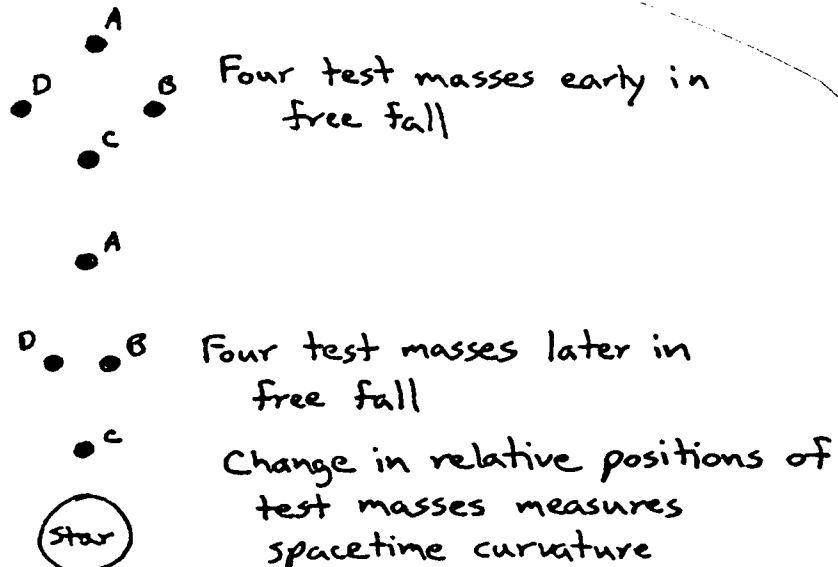 A
D
B
C
Four test masses early in
free fall
A
D
B
Four test masses later in
free fall
C
Change in relative positions of
test masses measures
spacetime curvature
Star